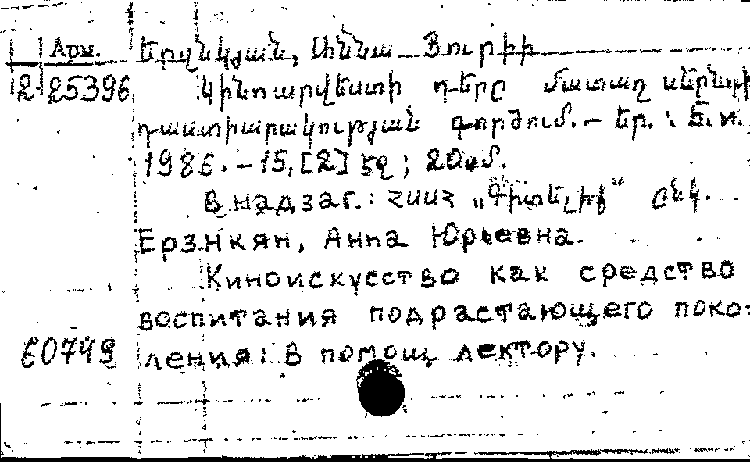 Арм. Երզնկյան, Աննա Յուրիի
2-25396 Կինոարվեստի դերը մատաղ սերնդի
դաստիարակության գործում. – Եր. : Б. и.
1986. – 15, [2] էջ ; 20 սմ.
В надзаг.: ՀՍՍՀ „Գիտելիք“ ընկ.
Ерзнкян, Анна Юрьевна.
Киноискусство как средство
воспитания подрастающего поко-
60749 ления: В помощ лектору.